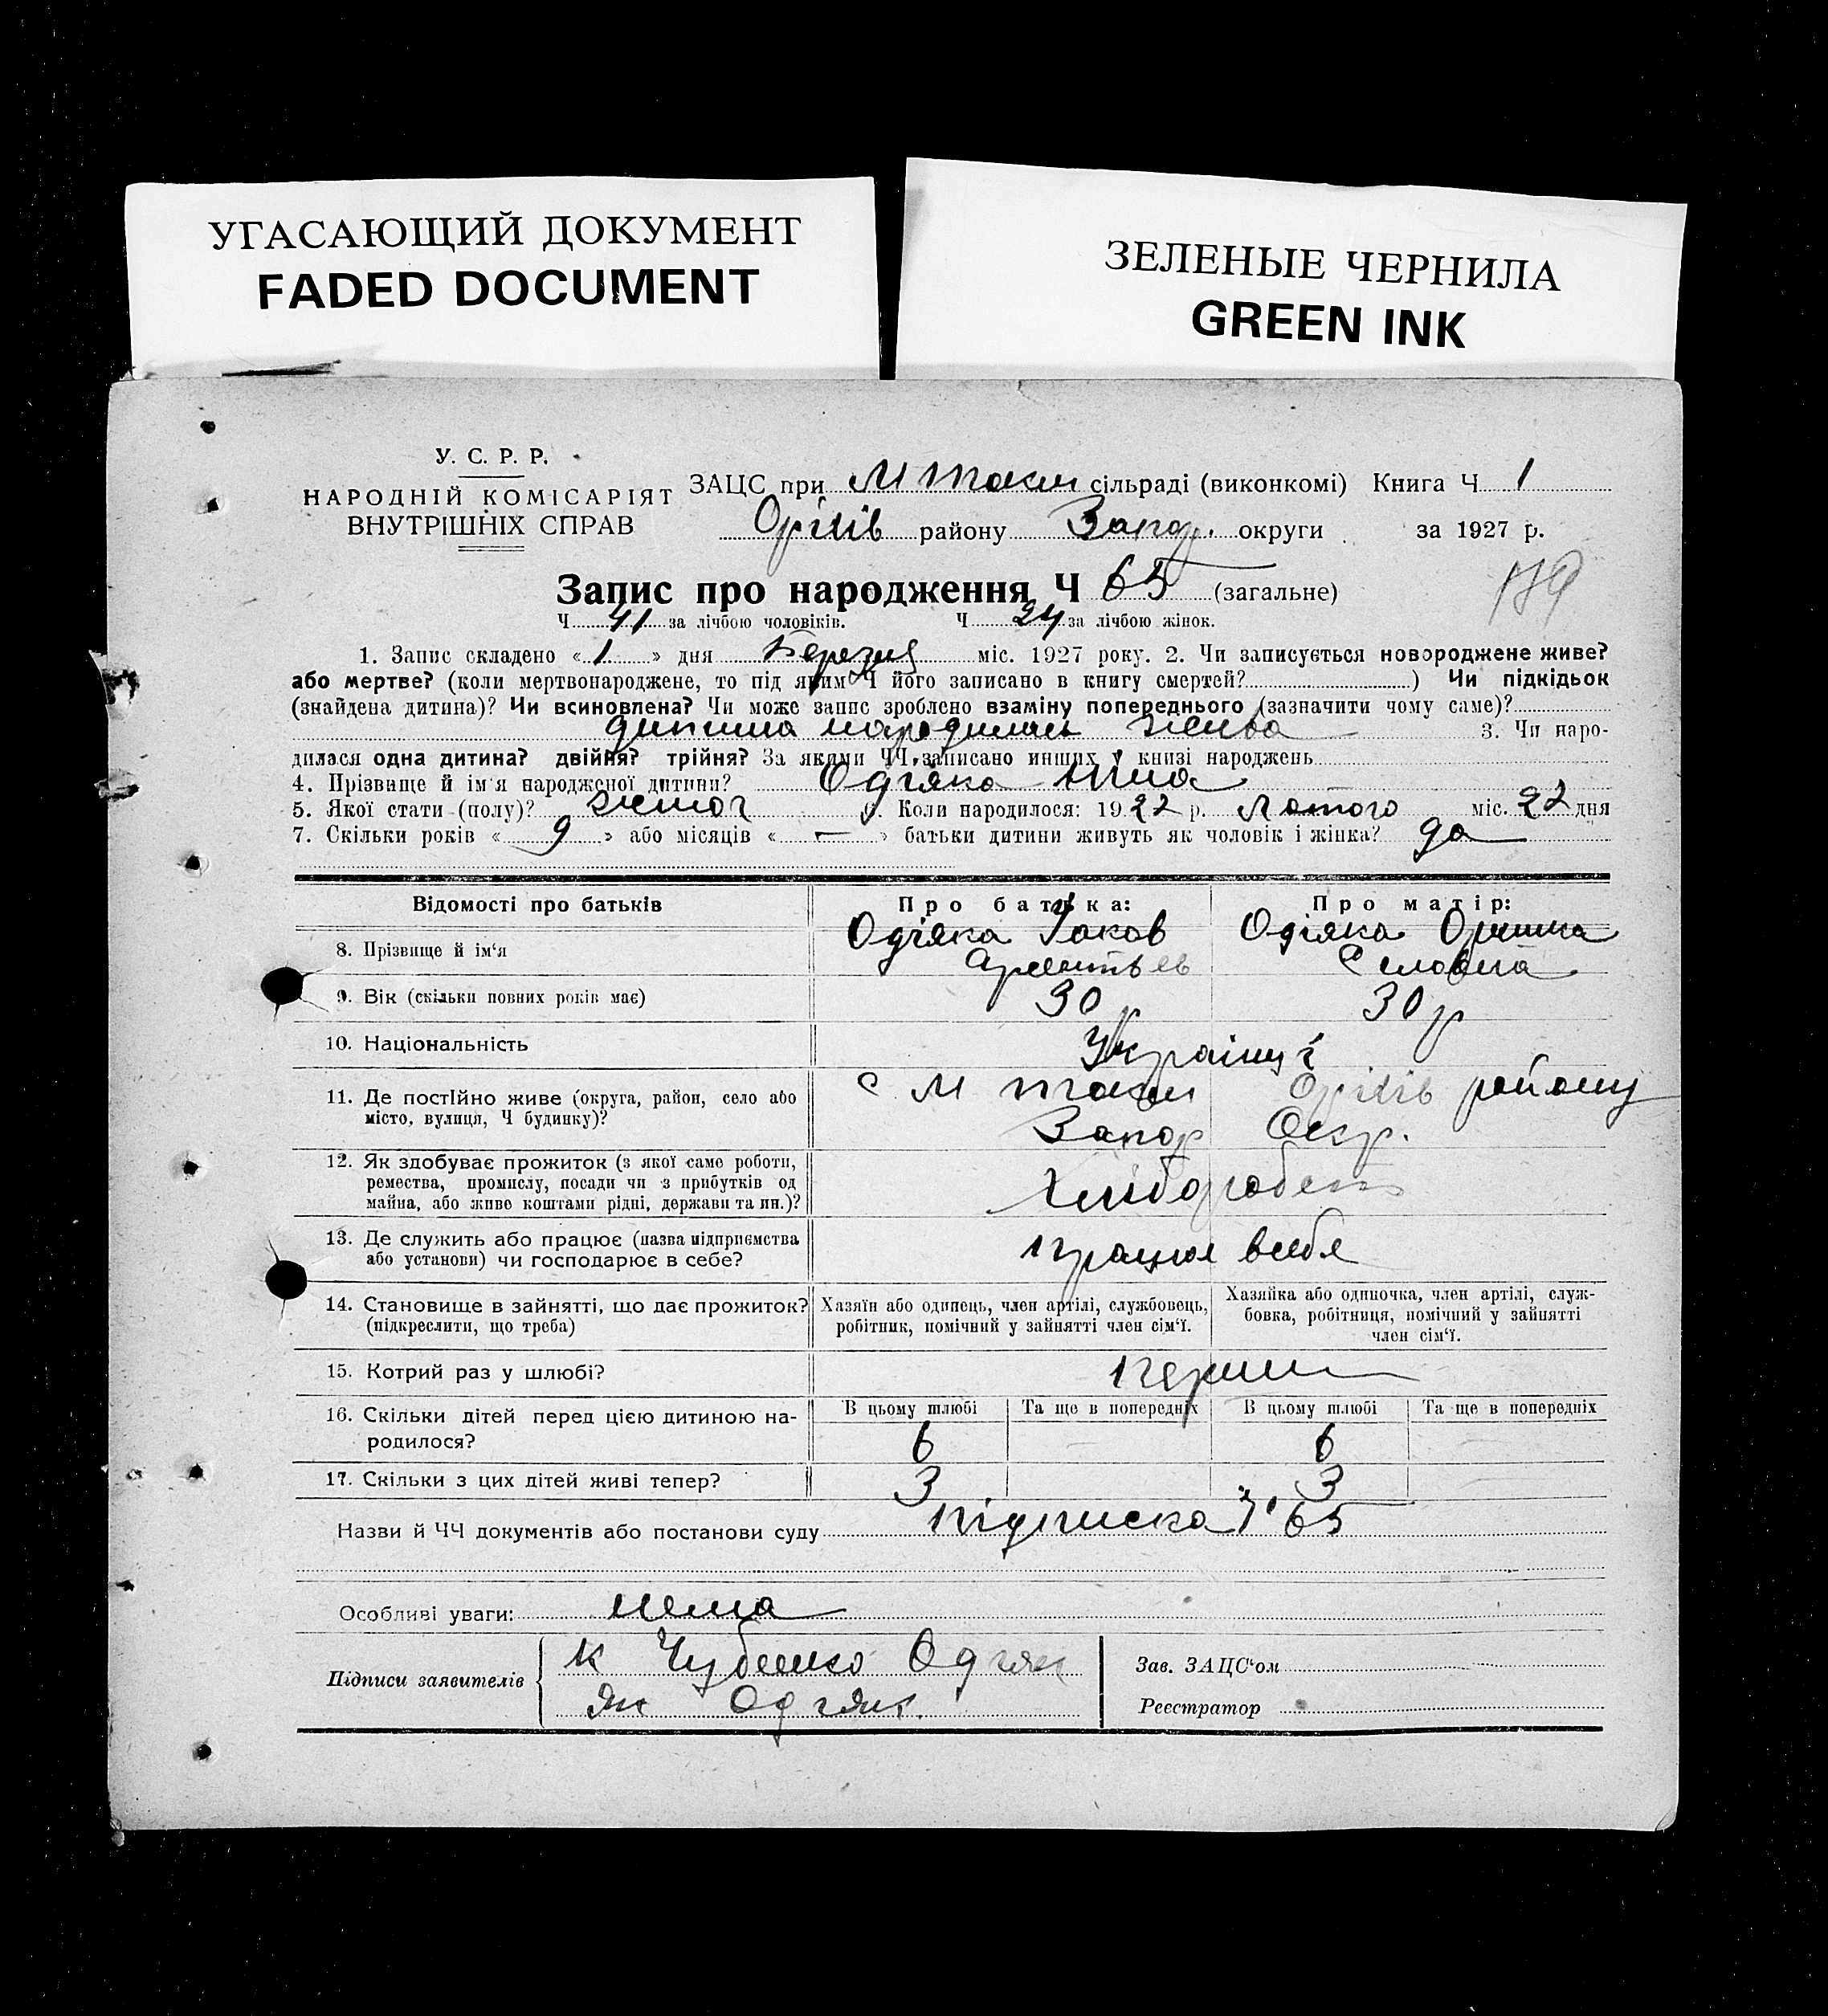 УГАСАЮЩИЙ ДОКУМЕНТ
FADED DOCUMENT
ЗЕЛЕНЫЕ ЧЕРНИЛА
GREEN INK
У. С. Р. Р.
НАРОДНІЙ КОМІСАРІЯТ
ВНУТРІШНІХ СПРАВ
ЗАЦС при М Токм сільраді (виконкомі) Книга Ч 1
Оріхів району Запор. округи за 1927 р.
Запис про народження Ч 65 (загальне)
Ч 41 за лічбою чоловіків. Ч 24 за лічбою жінок.
1. Запис складено « 1 » дня Березня міс. 1927 року. 2. Чи записується новороджене живе?
або мертве? (коли мертвонароджене, то під яким Ч його записано в книгу смертей? ) Чи підкідьок
(знайдена дитина)? Чи всиновлена? Чи може запис зроблено взаміну попереднього (зазначити чому саме)?
дитина народилась жива 3. Чи наро-
дилася одна дитина? двійня? трійня? За якими ЧЧ записано инших у книзі народжень
4. Прізвище й ім'я народженої дитини? Одіяка Нина
5. Якої стати (полу)? жіноч 6. Коли народилося: 1927 р. Лютого міс. 27 дня
7. Скільки років « 9 » або місяців « — » батьки дитини живуть як чоловік і жінка? да
Відомості про батьків
Про батька:
Про матір:
8. Прізвище й ім'я
Одіяка Яков
Одіяка Оришка
9. Вік (скільки повних років має)
30 р
30 р
10. Національність
Українці
11. Де постійно живе (округа, район, село або
місто, вулиця, Ч будинку)?
с М Токм Оріхів району
Запор Окр.
12. Як здобуває прожиток (з якої саме роботи,
ремества, промислу, посади чи з прибутків од
майна, або живе коштами рідні, держави та ин.)?
Хлібороб
13. Де служить або працює (назва підприємства
або установи) чи господарює в себе?
працює в себя
14. Становище в зайнятті, що дає прожиток?
(підкреслити, що треба)
Хазяїн або одинець, член артілі, службовець,
робітник, помічний у зайнятті член сім'ї.
Хазяйка або одиночка, член артілі, служ-
бовка, робітниця, помічний у зайнятті
член сім'ї.
15. Котрий раз у шлюбі?
перши
16. Скільки дітей перед цією дитиною на-
родилося?
В цьому шлюбі Та ще в попередніх В цьому шлюбі Та ще в попередніх
6 6
17. Скільки з цих дітей живі тепер?
3 3
Назви й ЧЧ документів або постанови суду підписка 65
Особливі уваги: нема
Підписи заявителів
К Чубенко Одіяк
Як Одіяк.
Зав. ЗАЦС'ом
Реєстратор